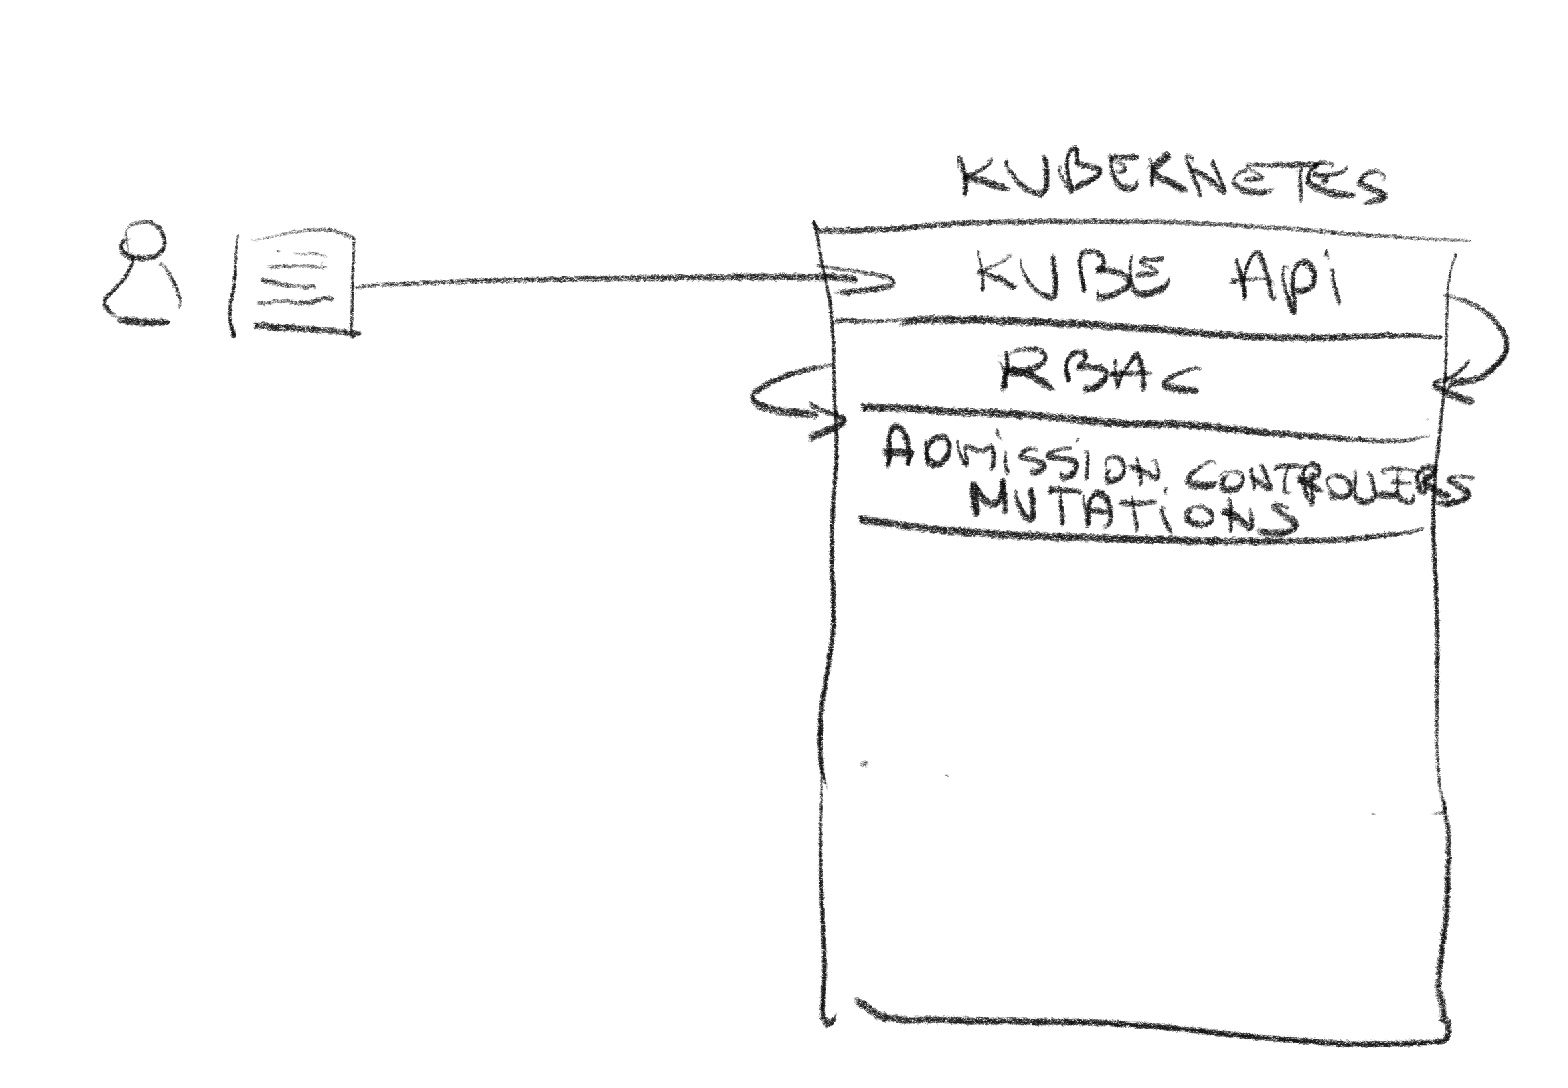 KUBERNETES
KUBE Api
RBAC
ADMISSION CONTROLLERS
MUTATIONS